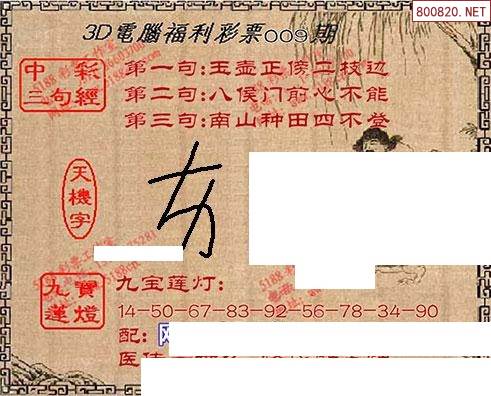 800820.NET
3D電腦福利彩票009期
中彩
三句經
第一句:玉壶正傍二枝边
第二句:八侯门前心不能
第三句:南山种田四不登
天機字
九寶
蓮燈
九宝莲灯:
14-50-67-83-92-56-78-34-90
配: